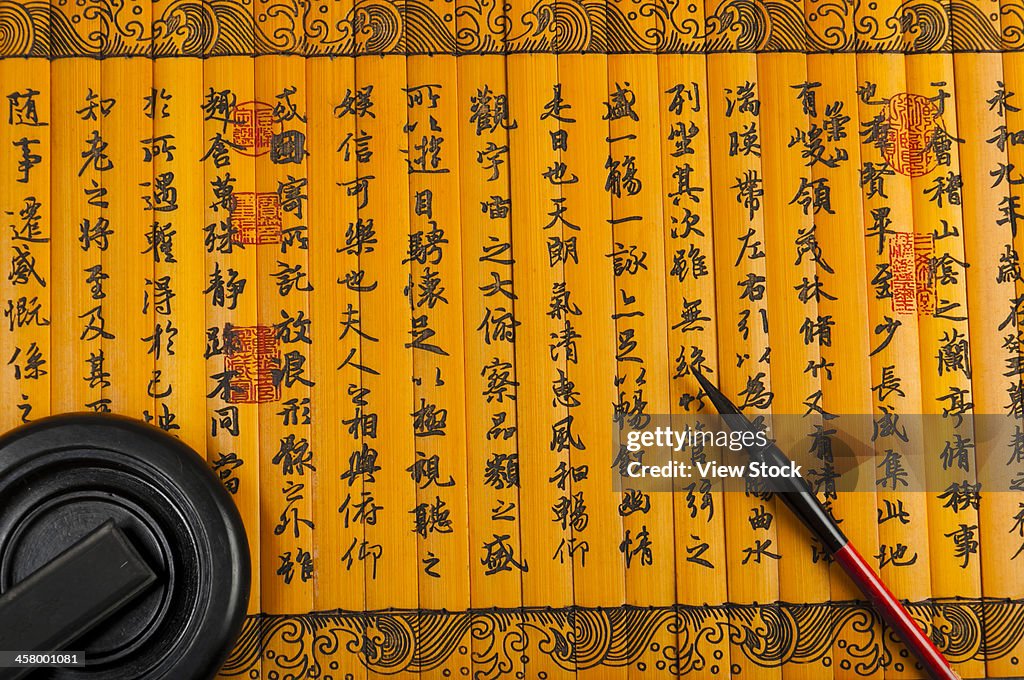 永和九年歲在癸丑暮春之初會
于會稽山陰之蘭亭脩稧事
也群賢畢至少長咸集此地
有崇山峻領茂林脩竹又有清流
湍暎帶左右引以為流觴曲水
列坐其次雖無絲竹管弦之
盛一觴一詠亦足以暢敘幽情
是日也天朗氣清惠風和暢仰
觀宇宙之大俯察品類之盛
所以遊目騁懷足以極視聽之
娛信可樂也夫人之相與俯仰
或因寄所託放浪形骸之外雖
趣舍萬殊靜躁不同當
於所遇暫得於己快
知老之將至及其所
隨事遷感慨係之
gettyimages®
View Stock
458001081